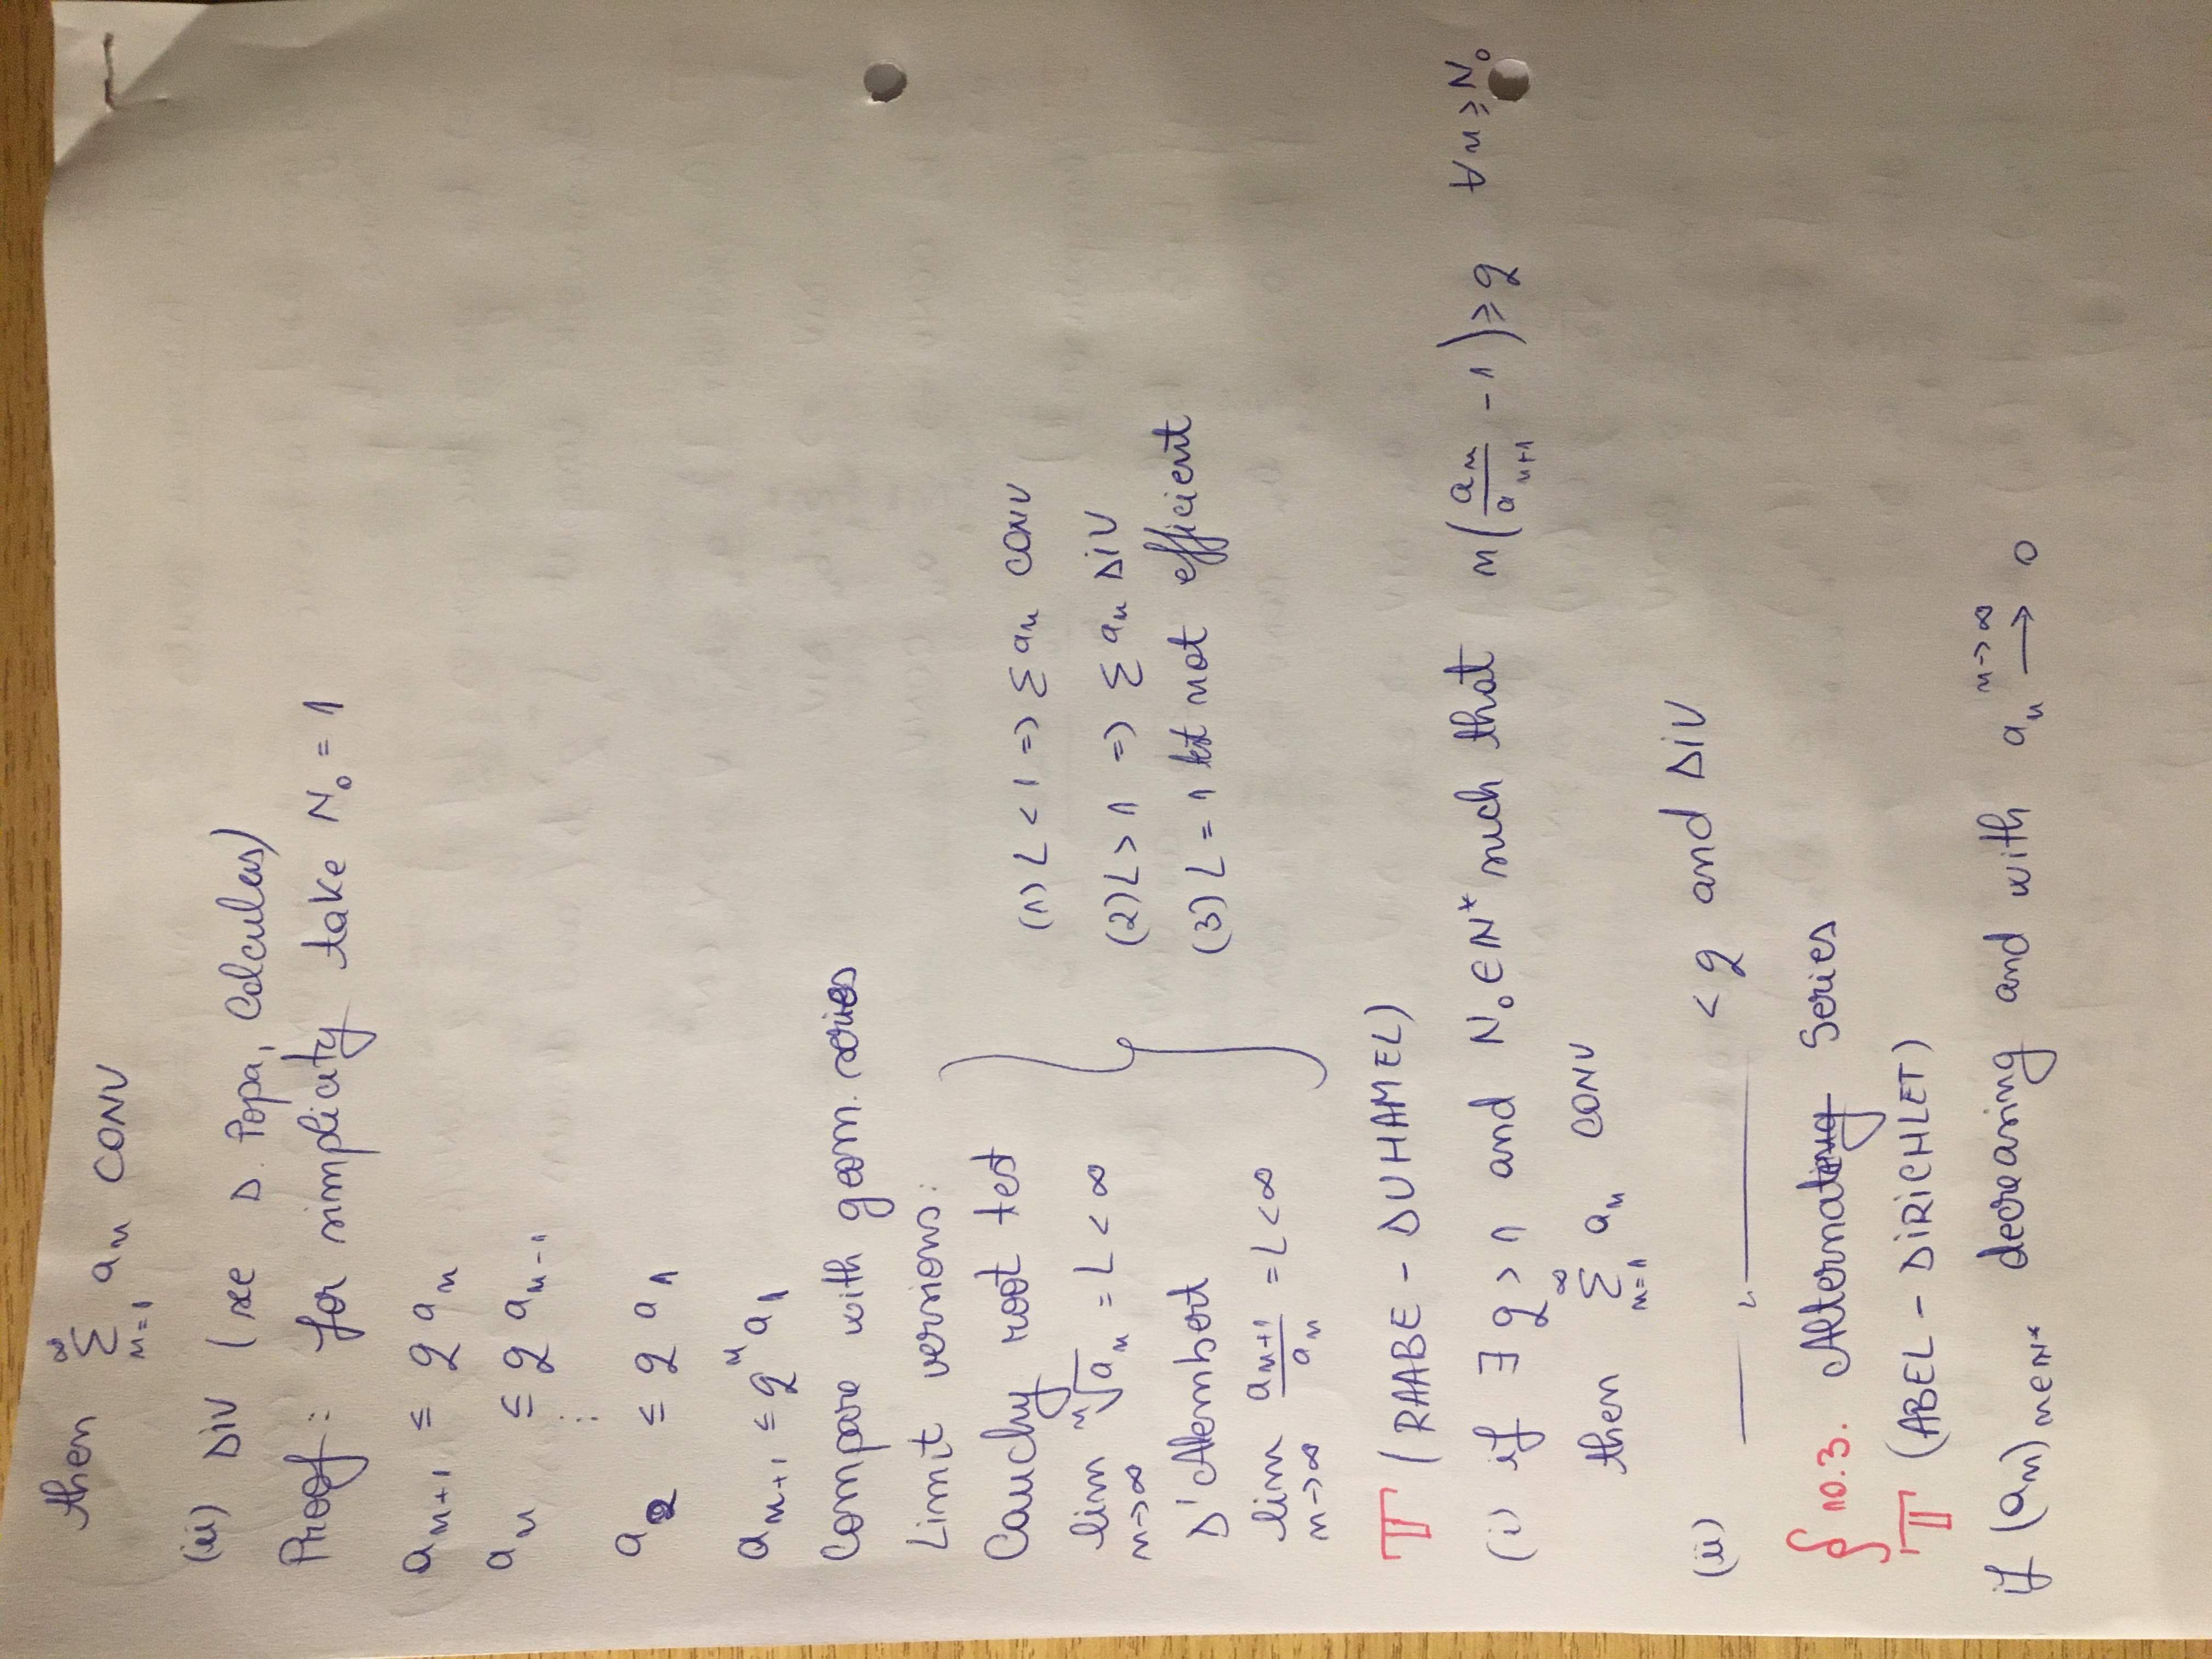 then ∞ Σ n=1 an CONV
(ii) DIV (see D. Popa, Calculus)
Proof: for simplicity take N₀ = 1
aₙ₊₁ ≤ q aₙ
aₙ ≤ q aₙ₋₁
⋮
a₂ ≤ q a₁
aₙ₊₁ ≤ qⁿ a₁
Compare with geom. series
Limit versions:
Cauchy root test
lim n→∞ ⁿ√aₙ = L < ∞
D'Alembert
lim n→∞ aₙ₊₁/aₙ = L < ∞
(1) L < 1 => Σ aₙ CONV
(2) L > 1 => Σ aₙ DIV
(3) L = 1 not efficient
T (RAABE - DUHAMEL)
(i) if ∃ q > 1 and N₀ ∈ ℕ* such that n(aₙ/aₙ₊₁ - 1) ≥ q ∀ n ≥ N₀
then ∞ Σ n=1 aₙ CONV
(ii) —— " —— < q and DIV
§ 10.3. Alternating Series
T (ABEL - DIRICHLET)
if (aₙ)n∈ℕ* decreasing and with aₙ n→∞ → 0